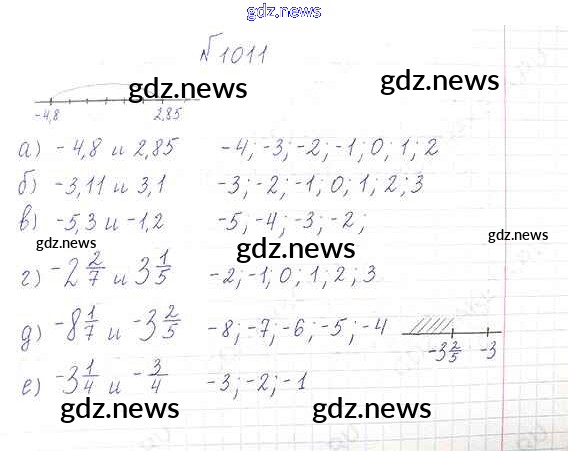 gdz.news
№1011
gdz.news gdz.news
-4,8 2,85
а) -4,8 и 2,85 -4; -3; -2; -1; 0; 1; 2
б) -3,11 и 3,1 -3; -2; -1; 0; 1; 2; 3
в) -5,3 и -1,2 -5; -4; -3; -2;
gdz.news gdz.news gdz.news
г) -2 2/7 и 3 1/5 -2; -1; 0; 1; 2; 3
д) -8 1/7 и -3 2/5 -8; -7; -6; -5; -4
-3 2/5 -3
е) -3 1/4 и -3/4 -3; -2; -1
gdz.news gdz.news